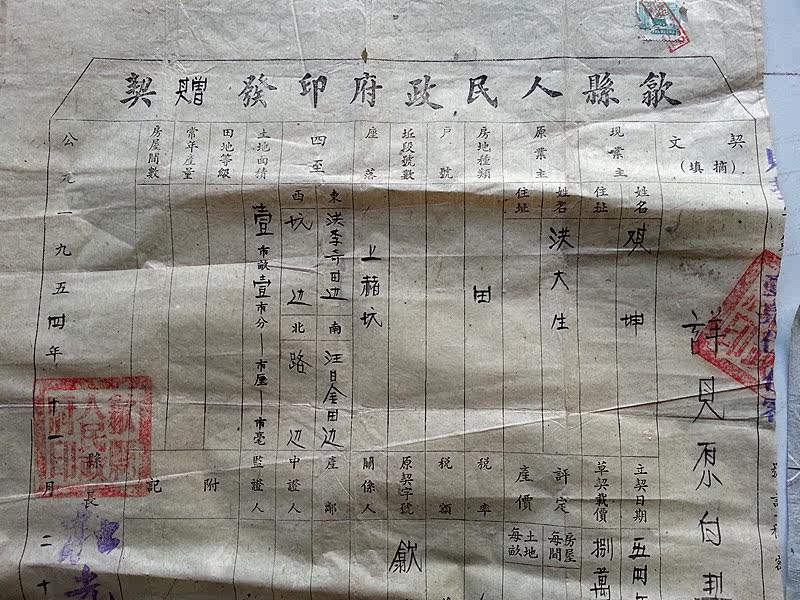 歙縣人民政府印發贈契
契文
(摘填)
詳見原白契
現業主
姓名
坤
住址
原業主
姓名
洪大生
住址
房地種類
田
戶號
坵段號數
座落
上赭坑
四至
東 洪李奇田边
南 汪日金田边
西 坑边
北 路边
土地面積
壹市畝壹市分—市厘—市毫
田地等級
常年產量
房屋間數
立契日期
五四年
草契載價
捌萬
評定產價
房屋每間
土地每畝
稅率
稅額
原契字號
歙
關係人
產鄰
中證人
監證人
附記
縣長
公元一九五四年十一月二十
歙縣人民政府印